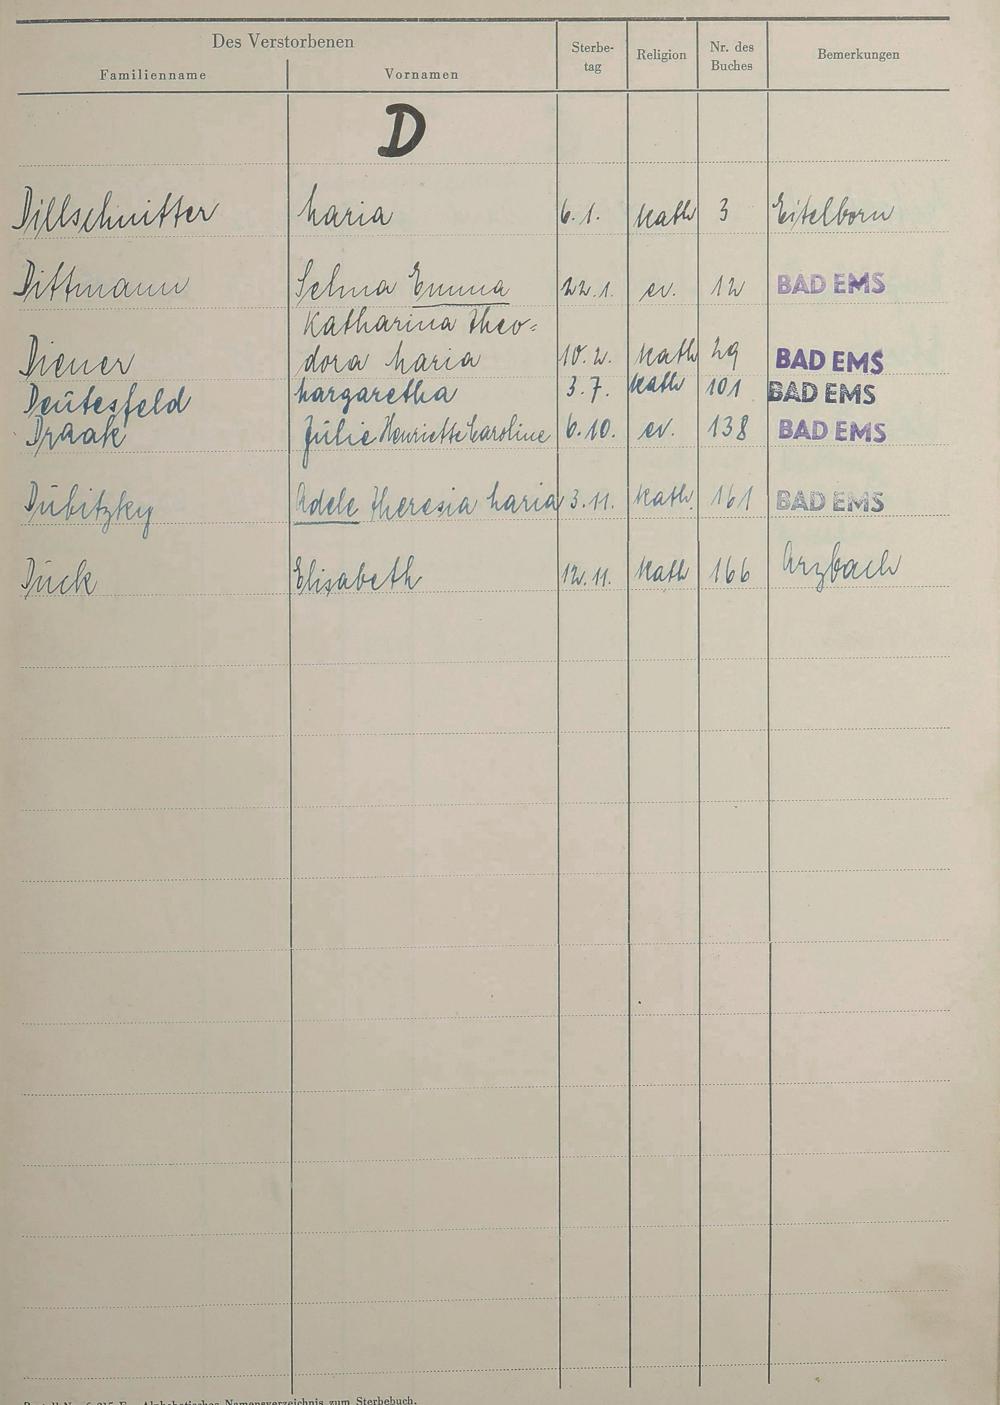 Des Verstorbenen
Familienname Vornamen Sterbe-tag Religion Nr. des Buches Bemerkungen
D
Dillschnitter Maria 6.1. Kath 3 Eitelborn
Dittmann Selma Emma 22.1. ev. 12 BAD EMS
Katharina Theo=
Diener dora Maria 10.2. Kath 29 BAD EMS
Deutesfeld Margaretha 3.7. Kath 101 BAD EMS
Draak Julie Henriette Caroline 6.10. ev. 138 BAD EMS
Dubitzky Adele Theresia Maria 3.11. Kath. 161 BAD EMS
Duck Elisabeth 12.11. Kath 166 Arzbach
Alphabetisches Namensverzeichnis zum Sterbebuch.